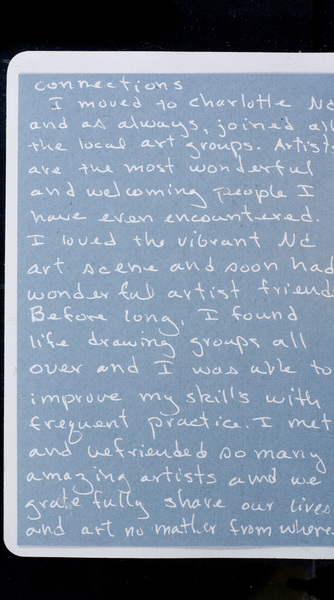 connections
I moved to Charlotte NC
and as always, joined all
the local art groups. Artists
are the most wonderful
and welcoming people I
have even encountered.
I loved the vibrant NC
art scene and soon had
wonderful artist friends
Before long, I found
life drawing groups all
over and I was able to
improve my skills with
frequent practice. I met
and befriended so many
amazing artists and we
gratefully share our lives
and art no matter from where